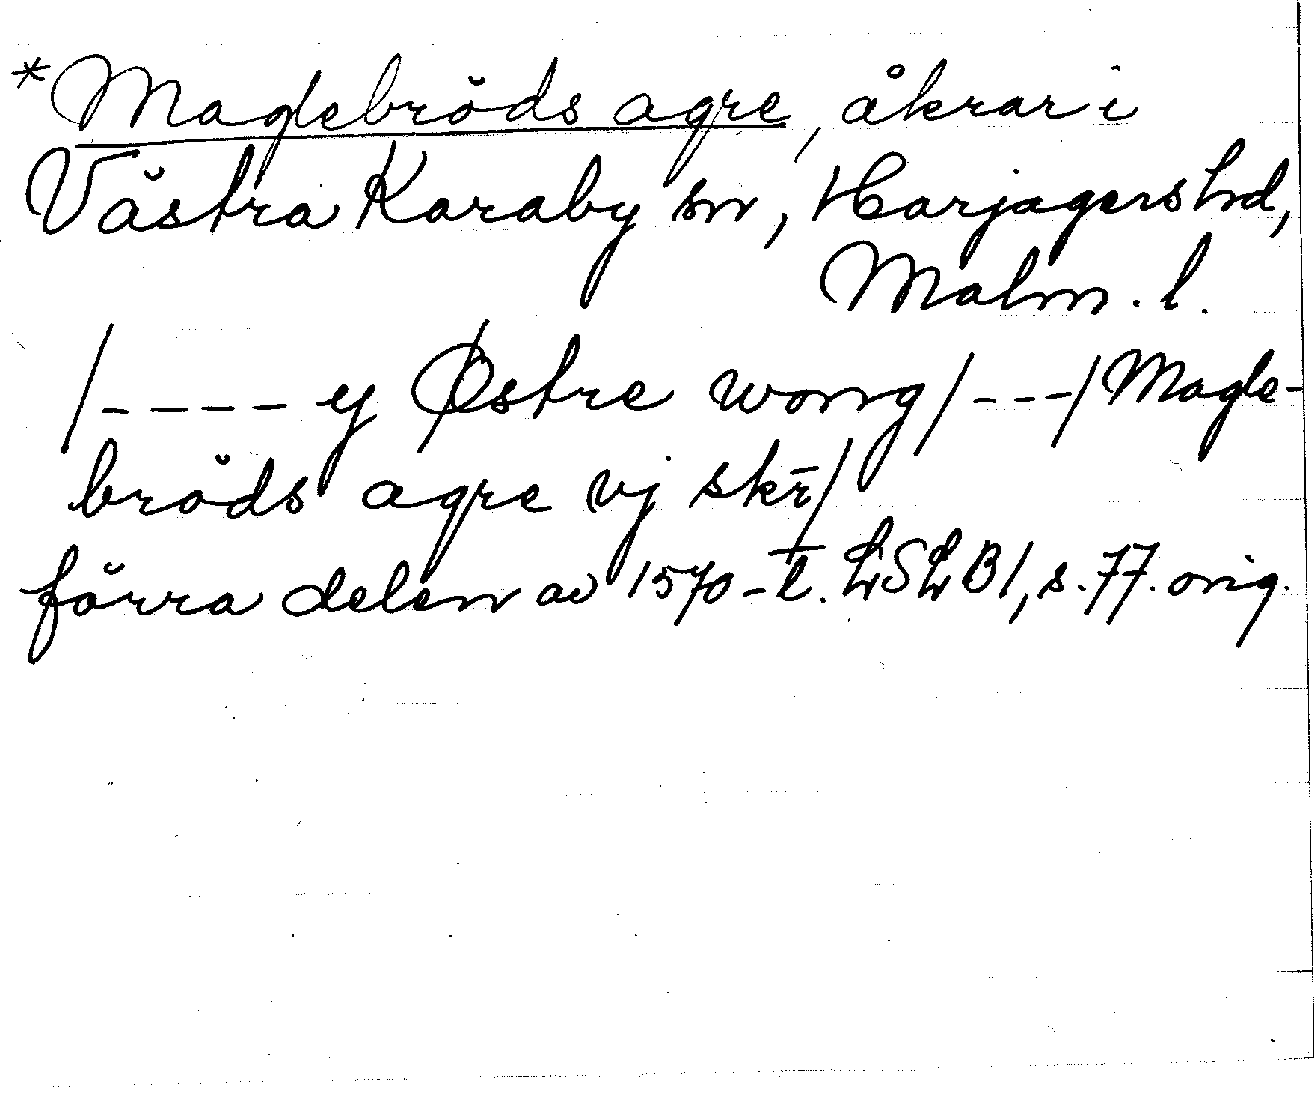 *Maglebröds agre, åkrar i
Västra Karaby sn, Harjagers hd,
Malm. l.
/---- y Østre wong/---/Magle-
bröds agre vj skr̄/
förra delen av 1570-t. LSLB1, s. 77. orig.